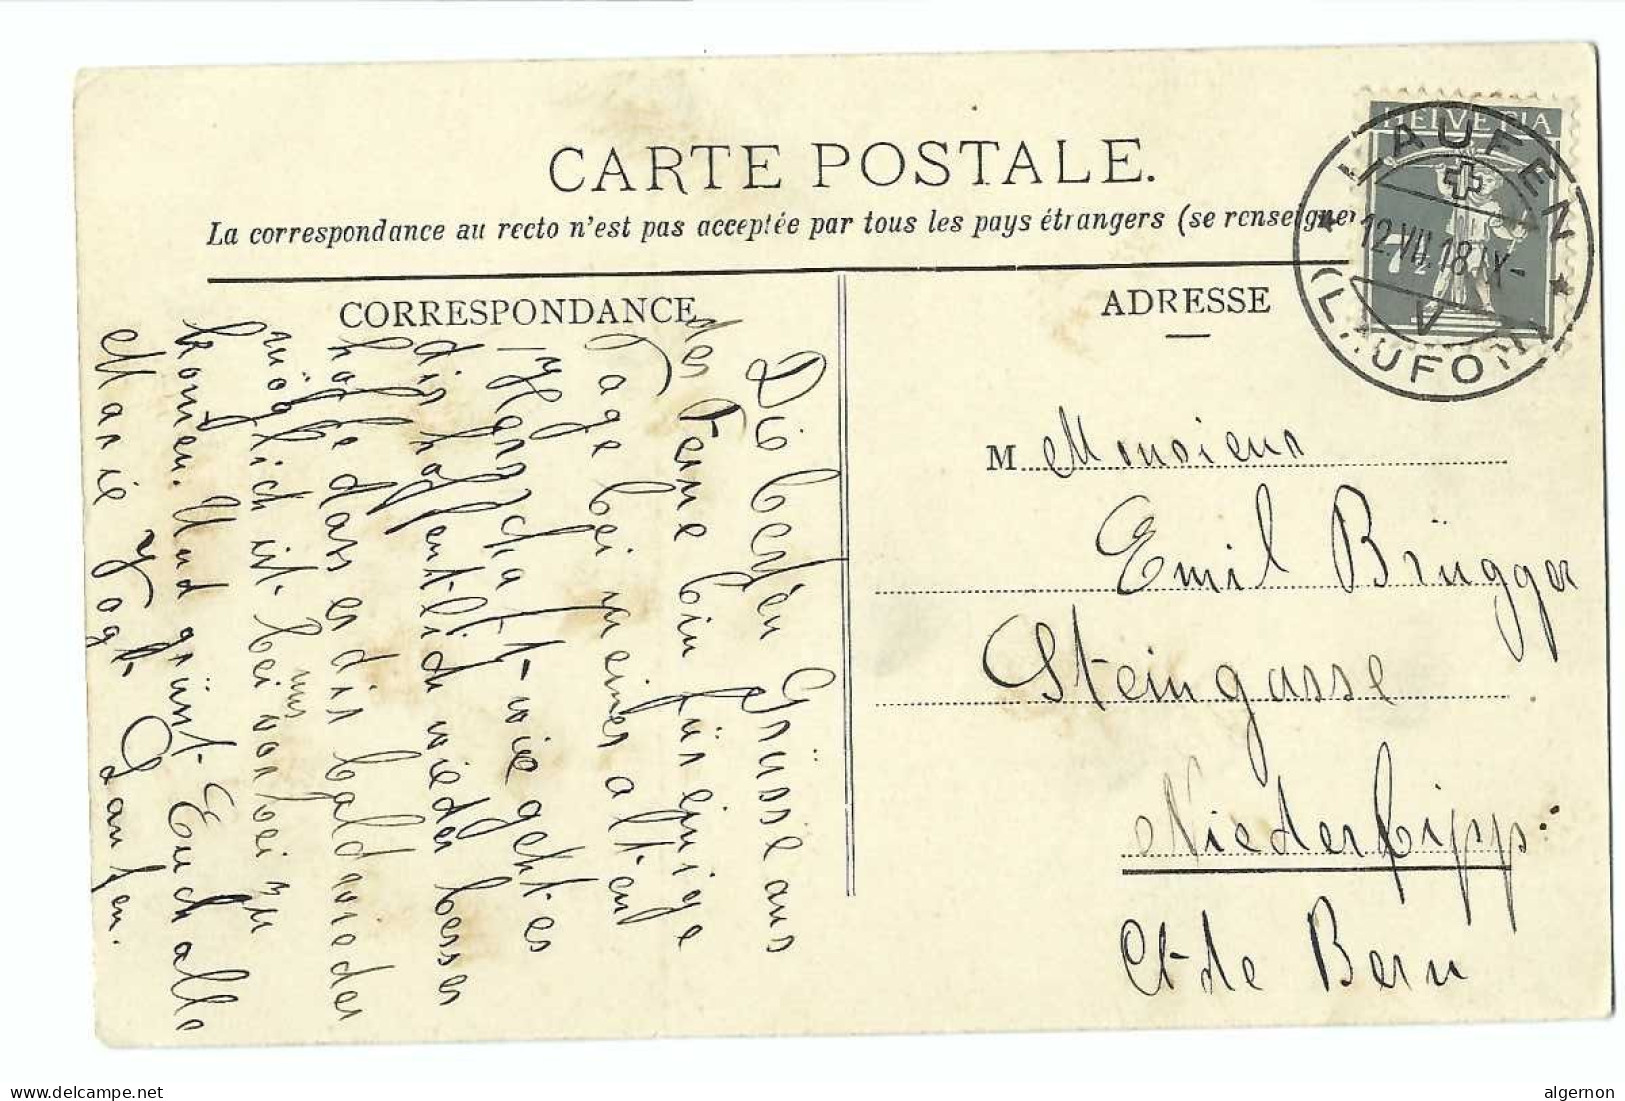 CARTE POSTALE.
La correspondance au recto n'est pas acceptée par tous les pays étrangers (se renseigner
CORRESPONDANCE
ADRESSE
HELVETIA
7½
LAUFEN
12.VII.18.IX-
V
(LAUFON)
M Monsieur
Emil Brügger
Steingasse
Niederbipp.
Ct. de Bern
Die besten Grüsse aus
der Ferne bin für einige
Tage bei meiner alten
Herrschaft wie geht es
dir hoffentlich wieder besser
hoffe dass es dir bald wieder
möglich ist bei uns vorbei zu
komen. Und grüsst Euch alle
Marie Vogt Laufen.
delcampe.net
algernon